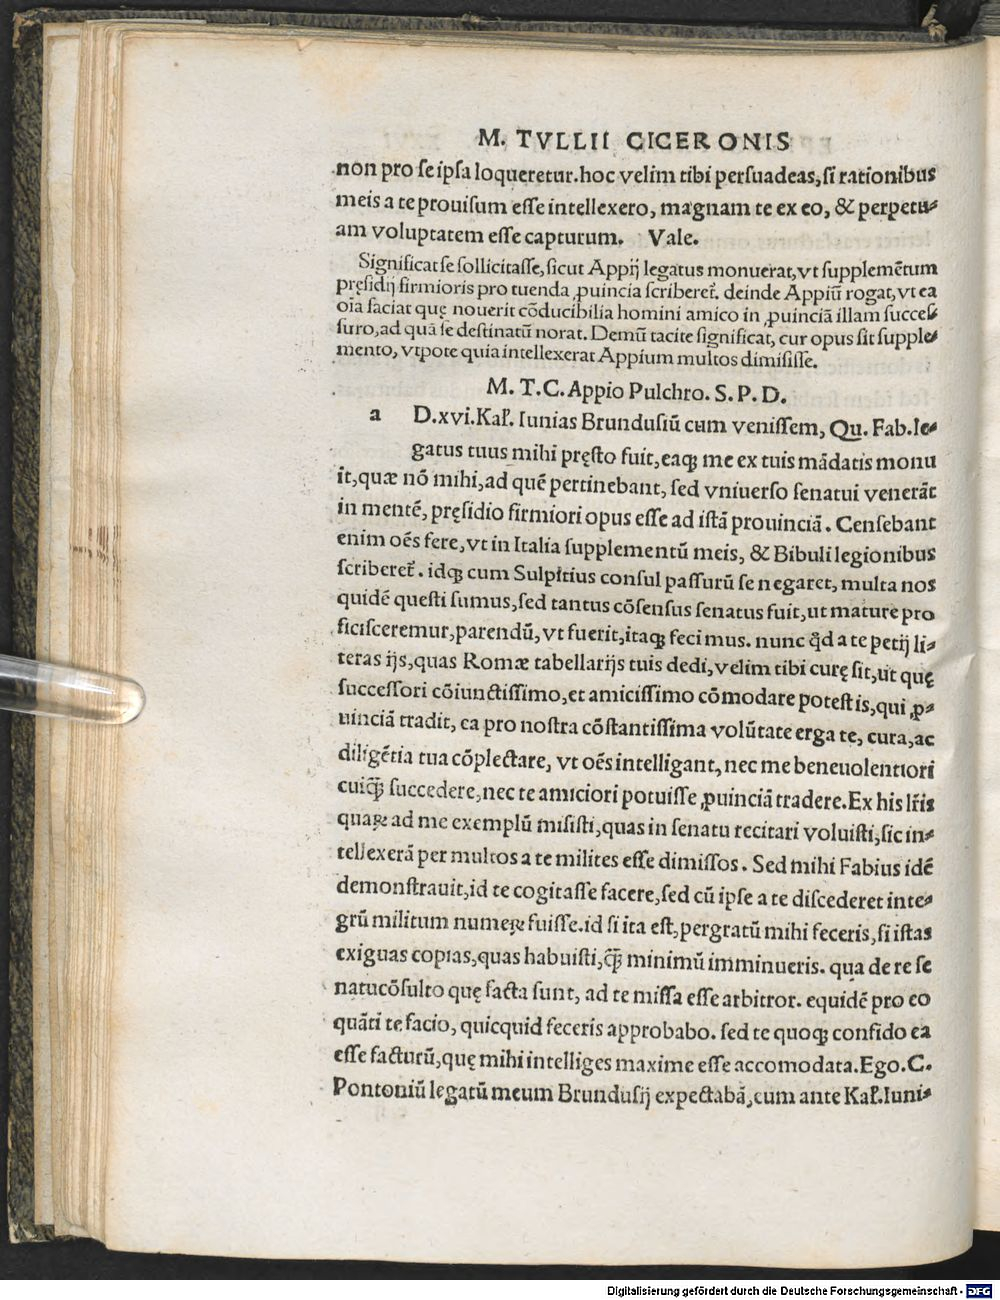 M. TVLLII CICERONIS
non pro se ipsa loqueretur.hoc velim tibi persuadeas,si rationibus
meis a te prouisum esse intellexero, magnam te ex eo, & perpetu-
am voluptatem esse capturum. Vale.
Significat se sollicitasse,sicut Appij legatus monuerat,vt supplemētum
pręsidij firmioris pro tuenda ꝓuincia scriberet᷑. deinde Appiū rogat,vt ea
oīa faciat quę nouerit cōducibilia homini amico in ꝓuinciā illam succes-
suro,ad quā se destinatū norat. Demū tacite significat, cur opus sit supple-
mento, vtpote quia intellexerat Appium multos dimisisse.
M. T. C. Appio Pulchro. S. P. D.
a D.xvi.Kal̕. Iunias Brundusiū cum venissem, Qu. Fab.le-
gatus tuus mihi pręsto fuit,eaqꝫ me ex tuis mādatis monu
it,quæ nō mihi,ad quē pertinebant, sed vniuerso senatui venerāt
in mentē, pręsidio firmiori opus esse ad istā prouinciā. Censebant
enim oēs fere,vt in Italia supplementū meis, & Bibuli legionibus
scriberet᷑. idqꝫ cum Sulpitius consul passurū se negaret, multa nos
quidē questi sumus,sed tantus cōsensus senatus fuit,ut mature pro
ficisceremur,parendū, vt fuerit,itaqꝫ fecimus. nunc qd̄ a te petij li-
teras ijs,quas Romæ tabellarijs tuis dedi,velim tibi curę sit,ut quę
successori cōiunctissimo,et amicissimo cōmodare potest is,qui ꝓ-
uinciā tradit, ea pro nostra cōstantissima volūtate erga te, cura,ac
diligētia tua cōplectare, vt oēs intelligant, nec me beneuolentiori
cuiqꝫ̄ succedere,nec te amiciori potuisse ꝓuinciā tradere.Ex his lr̄is
quaꝝ ad me exemplū misisti,quas in senatu recitari voluisti,sic in-
tellexerā per multos a te milites esse dimissos. Sed mihi Fabius idē
demonstrauit,id te cogitasse facere,sed cū ipse a te discederet inte-
grū militum numeꝝ fuisse.id si ita est,pergratū mihi feceris,si istas
exiguas copias,quas habuisti,qꝫ̄ minimū imminueris. qua de re se
natucōsulto quę facta sunt, ad te missa esse arbitror. equidē pro eo
quāti te facio, quicquid feceris approbabo. sed te quoqꝫ confido ea
esse facturū,quę mihi intelliges maxime esse accomodata.Ego.C.
Pontoniū legatū meum Brundusij expectabā,cum ante Kal̕.Iuni-
Digitalisierung gefördert durch die Deutsche Forschungsgemeinschaft - DFG